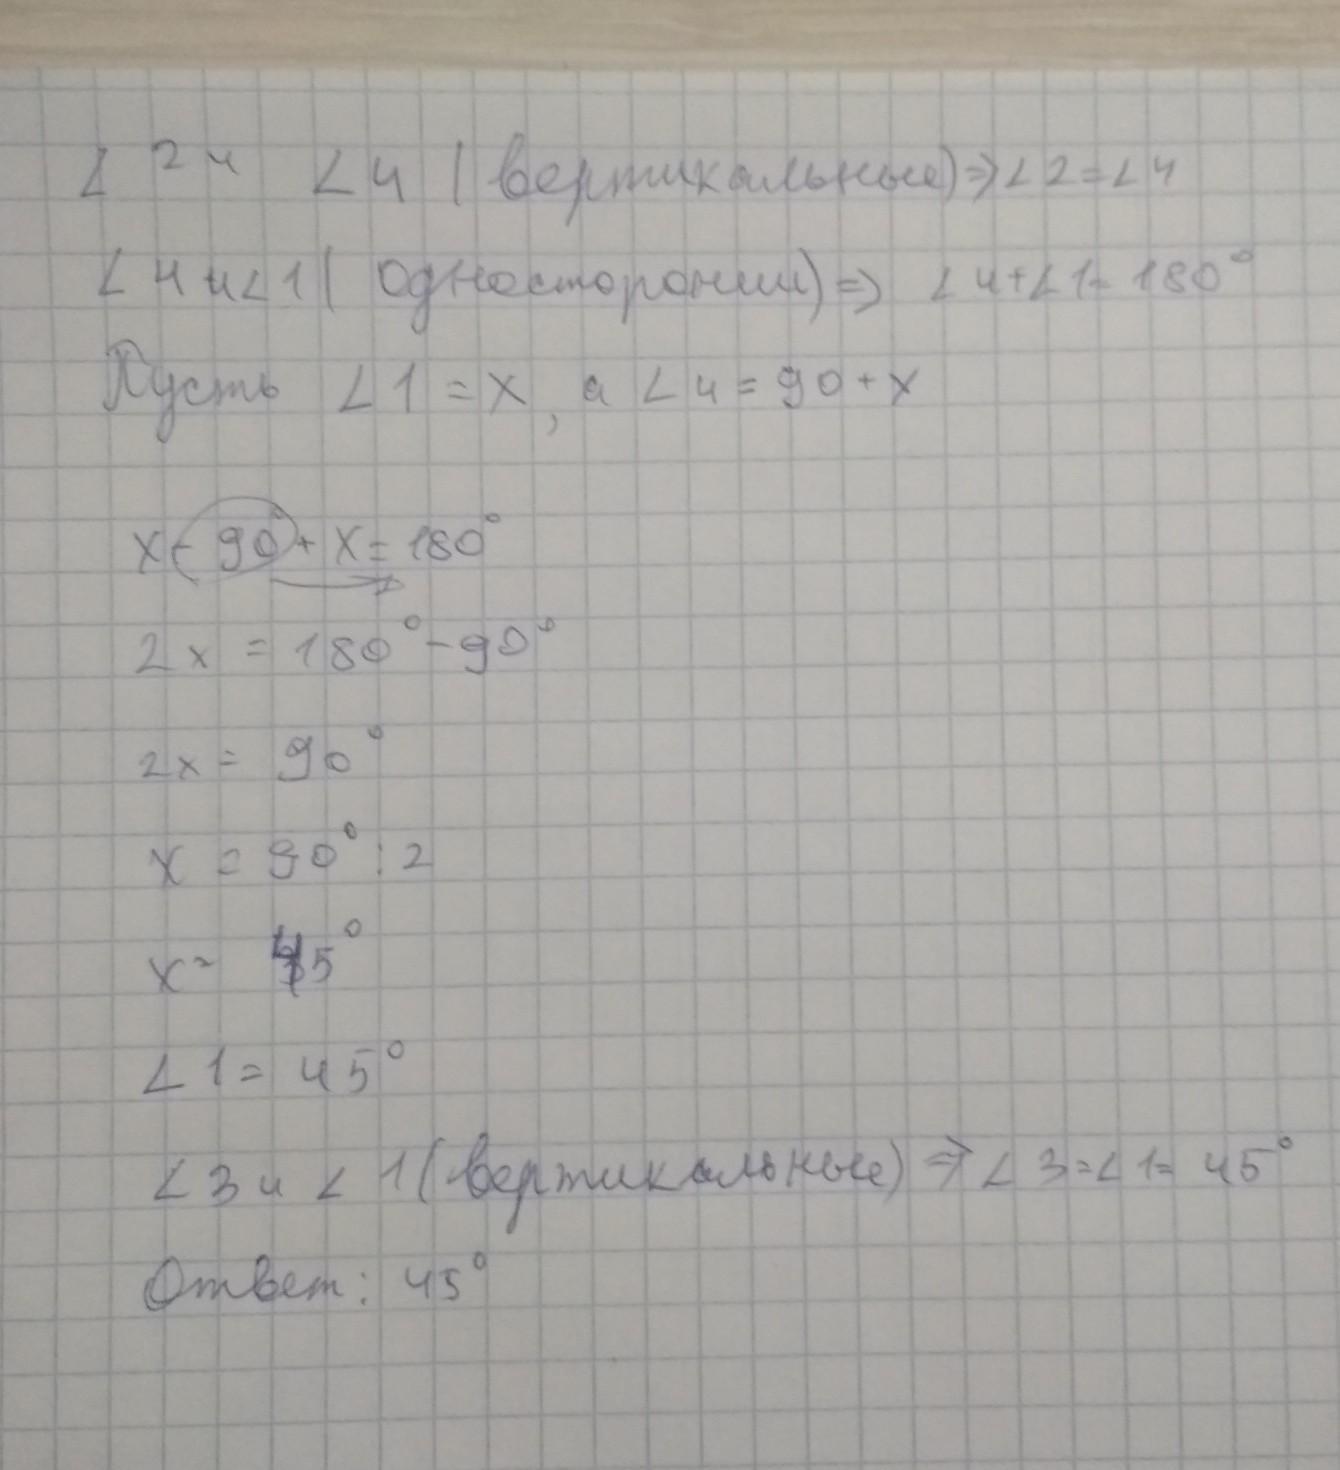 ∠2 и ∠4 (вертикальные) ⇒ ∠2 = ∠4
∠4 и ∠1 (односторонии) ⇒ ∠4 + ∠1 = 180°
Пусть ∠1 = x, а ∠4 = 90 + x
x + 90° + x = 180°
2x = 180° - 90°
2x = 90°
x = 90° : 2
x = 45°
∠1 = 45°
∠3 и ∠1 (вертикальные) ⇒ ∠3 = ∠1 = 45°
Ответ: 45°